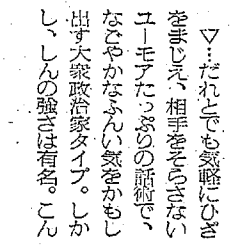 ▽…だれとでも気軽にひざ
をまじえ、相手をそらさない
ユーモアたっぷりの話術で、
なごやかなふんい気をかもし
出す大衆政治家タイプ。しか
し、しんの強さは有名。こん